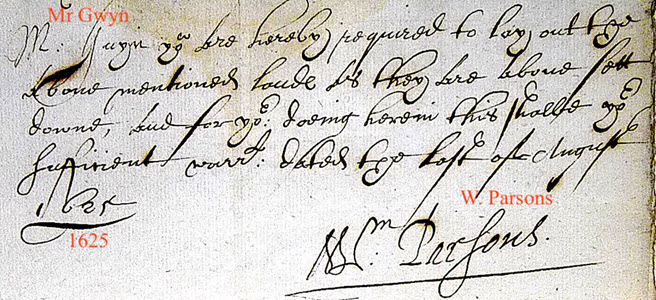 Mr Gwyn
M: Gwyn yo are hereby required to lay out the
above mentioned lands as they are above sett
downe, and for yor: doeing herein this shalbe yor
sufficient warrt: dated the last of August
1625
1625
W. Parsons
Wm: Parsons.